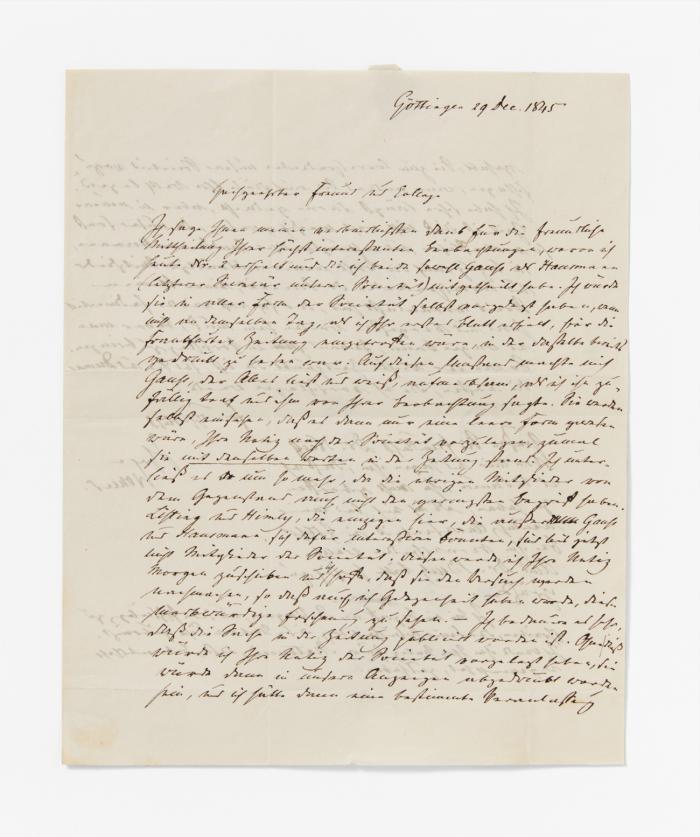 Göttingen 29 Dec. 1845
Hochgeehrter Freund und College
Ich sage Ihnen meinen verbindlichsten Dank für die freundliche
Mittheilung Ihrer höchst interessanten Beobachtungen, wovon ich
heute erhielt und die ich beide sowohl Gauss als Hausmann
(letzterer Secretär unserer Societät) mitgetheilt habe. Ich würde
sie in aller Form der Societät selbst vorgelegt haben, wenn
nicht an demselben Tag, als ich Ihr erstes Blatt erhielt, hier die
Frankfurter Zeitung eingetroffen wäre, in der dasselbe bereits
gedruckt zu lesen war. Auf diesen Umstand machte mich
Gauss, der Alles liest und weiß, aufmerksam, als ich ihn zu-
fällig traf und ihm von Ihrer Beobachtung sagte. Sie werden
selbst einsehen, daß es dann nur eine leere Form gewesen
wäre, Ihre Notiz noch der Societät vorzulegen, zumal
sie mit denselben Worten in der Zeitung stand. Ich unter-
ließ es um so mehr, da die übrigen Mitglieder von
dem Gegenstand auch nicht den geringsten Begriff haben.
Listing und Himly, die einzigen hier, die außer Gauss
und Hausmann sich dafür interessiren könnten, sind bis jetzt
nicht Mitglieder der Societät. Diesen werde ich Ihre Notiz
Morgen zuschicken und hoffe, daß sie den Versuch werden
nachmachen, so daß auch ich Gelegenheit haben werde, diese
merkwürdige Erscheinung zu sehen. — Ich bedaure es sehr,
daß die Sache in der Zeitung publicirt worden ist. Ohne dieß
würde ich Ihre Notiz der Societät vorgelegt haben, sie
würde dann in unsern Anzeigen abgedruckt worden
sein, und ich hätte dann eine bestimmte Veranlassung